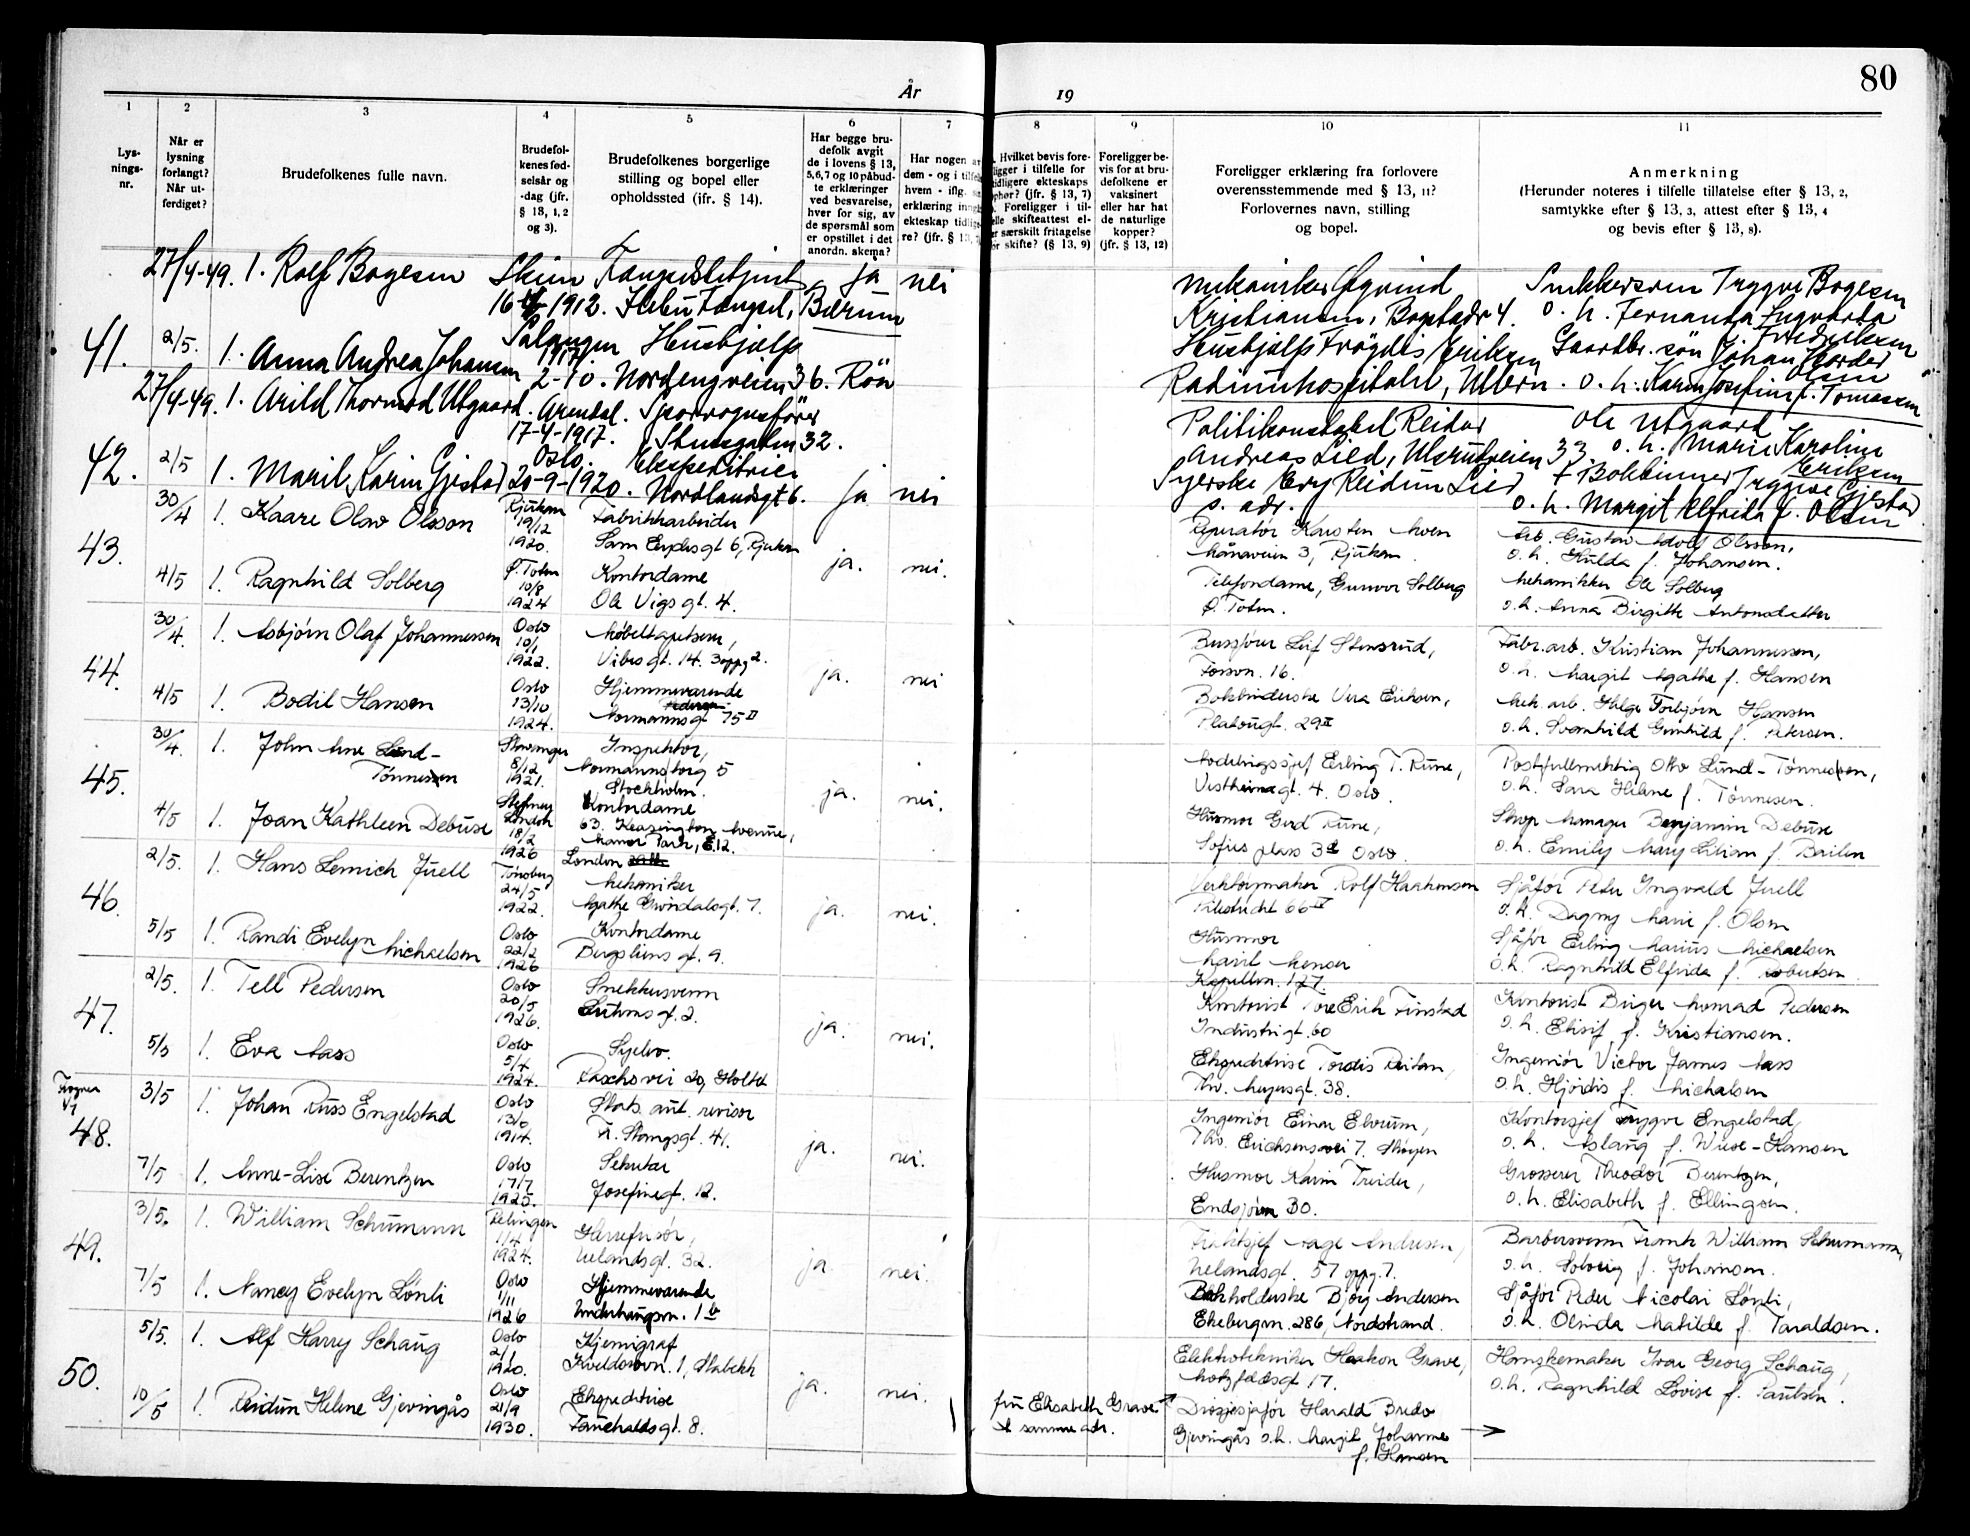 80
År
19
1
2
3
4
5
6
7
8
9
10
11
Lys-
nings-
nr.
Når er
lysning
forlangt?
Når ut-
ferdiget?
Brudefolkenes fulle navn.
Brudefol-
kenes fød-
selsår og
-dag (jfr.
§ 13, 1, 2
og 3).
Brudefolkenes borgerlige
stilling og bopel eller
opholdssted (ifr. § 14).
Har begge bru-
defolk avgit
de i lovens § 13,
5,6,7 og 10 påbud-
te erklæringer
ved besvarelse,
hver for sig, av
de spørsmål som
er opstillet i det
anordn. skema?
Har nogen av
dem - og i tilfe
hvem - iflg.
erklæring inng
ekteskap tidlig
re? (jfr. § 13,
Hvilket bevis fore-
ligger i tilfelle for
tidligere ekteskaps
ophør? (jfr. § 13, 7)
Foreligger i til-
elle skifteattest el-
er særskilt fritagelse
or skifte? (§ 13, 9)
Foreligger be-
vis for at bru-
defolkene er
vaksinert
eller har hat
de naturlige
kopper?
(jfr. § 13, 12)
Foreligger erklæring fra forlovere
overensstemmende med § 13, 11?
Forlovernes navn, stilling
og bopel.
Anmerkning
(Herunder noteres i tilfelle tillatelse efter § 13, 2,
samtykke efter § 13, 3, attest efter § 13, 4
og bevis efter § 13, 8).
41.
27/4-49. 1. Rolf Bogesen
16- -1912. Ilebu Fengsel, Bærum
ja nei
mekaniker Øyvind
Kristiansen, Bogstadv 4.
Snekkersvenn Trygve Bogesen
o. h. Fernanda Ingvarda
f. Fredriksen
2/5. 1. Anna Andrea Johansen
Salangen Hushjelp
1917.
2-10. Nordengveien 36. Röa
Radiumhospitalet, Ullern.
o. h. Karen Josefine f. Tomassen
42.
27/4-49. 1. Arild Thormod Utgaard.
Arendal. Sporvognsfører
17-4-1917. Stensgaten 32.
Politikonstabel Reidar
Andreas Lied, Ullernveien 33
Ole Utgaard
o. h. Marie Karoline
Eriksen
2/5 1. Marit Karin Gjestad
Oslo. Ekspeditrice
20-9-1920. Nordlandsgt 6.
ja nei
Syerske Evy Reidun Lied
s. adr.
+ Bokbinder Tryggve Gjestad
o. h. Margit Elfrida f. Olsen
43.
30/4 1. Kaare Olav Olsson
Rjukan
19/12
1920.
Fabrikkarbeider
Sam Eydes gt 6, Rjukan
ja. nei.
Reparatør Karsten Moen
Månaveien 3, Rjukan.
Arb. Gustav Adolf Olsson,
o. h. Hulda f. Johansen.
4/5 1. Ragnhild Solberg
Ø. Toten
10/8
1924
Kontordame
Ole Vigs gt. 4.
Telefondame, Gunvor Solberg
Ø. Toten.
Mekaniker Ole Solberg
o.h. Anna Birgitte Antonsdatter
44.
30/4. 1. Asbjørn Olaf Johannessen
Oslo
10/1
1922.
Møbeltapetserer,
Vibes gt. 14. 3 oppg 2.
ja. nei
Bussjåfør Leif Stensrud,
Fossvn. 16.
Fabr.arb. Kristian Johannessen,
o. h. Margit Agathe f. Hansen
4/5 1. Bodil Hansen
Oslo
13/10
1924.
Hjemmeværende
Normannsgt 75 II
Bokbinderske Vera Eriksen,
Platougt. 29 II
Mek. arb. Helge Torbjørn Hansen
o. h. Svanhild Gunhild f. Petersen.
45.
30/4. 1. John Arne Lund-
Tønnesen
Stavanger
8/12
1921.
Inspektør,
Normannstorg 5
Stockholm.
ja. nei.
Avdelingssjef Erling T. Rune,
Vestheimgt. 4. Oslo.
Postfullmektig Otto Lund-Tønnesen,
o. h. Sara Helene f. Tønnesen.
4/5 1. Joan Kathleen Debuse
Stepney
London
18/2
1926
Kontordame
63. Kensington Avenue,
Manor Park, E.12.
London
Husmor Gerd Rune,
Sofies plass 3 Oslo.
Shop Manager Benjamin Debuse
o. h. Emily Mary Lilian f. Bailen
46.
2/5. 1. Hans Lemich Juell
Tønsberg
24/5
1922.
Mekaniker
Agathe Grøndalsgt. 7.
ja. nei.
Verktøymaker Rolf Haakensen
Pilestredet 66 IV
Sjåfør Peter Ingvald Juell
o. h. Dagny Marie f. Olsen
5/5 1. Randi Evelyn Michaelsen
Oslo
22/2
1926
Kontordame
Bergsliens gt. 9.
Husmor
Marit Menser
Kapellvn. 127.
Sjåfør Erling Marius Michaelsen
o. h. Ragnhild Elfrida f. Robertsen.
47.
2/5. 1. Tell Pedersen
Oslo
20/5
1926.
Snekkersvenn
Euhmsgt. 2.
ja. nei.
Kontorist Tore Erik Finstad
Industrigt. 60
Kontorist Birger Monrad Pedersen
o. h. Elisif f. Kristiansen.
5/5 1. Eva Aass
Oslo
5/4
1924.
Syelev.
Paschsvei 20, Holtet
Ekspeditrise Tordis Reitan,
Thv. Meyersgt. 38.
Ingeniør Victor James Aass
o. h. Hjørdis f. Michalsen
48.
3/5 1. Johan Russ Engelstad
Oslo
1914.
Stats. aut. revisor
Fr. Stangsgt. 41.
ja. nei.
Ingeniør Einar Elvrum,
Thv. Erichsensvei 7. Skøyen
Kontorsjef Trygve Engelstad,
o. h. Aslaug f. Wiese-Hansen
7/5 1. Anne-Lise Berentzen
Oslo
17/7
1925.
Sekretær
Josefinegt. 12.
Husmor Karin Treider,
Endsjøvn 30.
Grosserer Theodor Berentzen,
o. h. Elisabeth f. Ellingsen.
49.
3/5. 1. William Schumann
1/4
1924.
Herrefrisør,
Uelandsgt. 32.
ja. nei.
Fraktsjef Aage Andresen,
Uelandsgt. 57 oppg. 7.
Barbersvenn Frank William Schumann,
o. h. Solveig f. Johansen.
7/5 1. Nancy Evelyn Lønli
Oslo
1/11
1926
Hjemmeværende
Underhaugsvn. 1 b
Bokholderske Bjørg Andersen
Ekebergvn. 286, Nordstrand.
Sjåfør Peder Nicolai Lønli,
o. h. Olinda Matilde f. Taraldsen.
50.
5/5. 1. Alf Harry Schaug
Oslo
2/1
1920.
Kjemigraf
Kveldsrovn. 1, Stabekk
ja. nei.
Elektrotekniker Haakon Grave,
Motzfeldtsgt 17.
Hanskemaker Ivar Georg Schaug,
o. h. Ragnhild Lovise f. Paulsen.
10/5 1. Reidun Helene Gjevingås
Oslo
21/9
1930.
Ekspeditrise
Fauchaldsgt. 8.
fru Elisabeth Grave
samme adr.
Drosjesjåfør Harald Bredo
Gjevingås o.h. Margit Johanne
f. Hansen